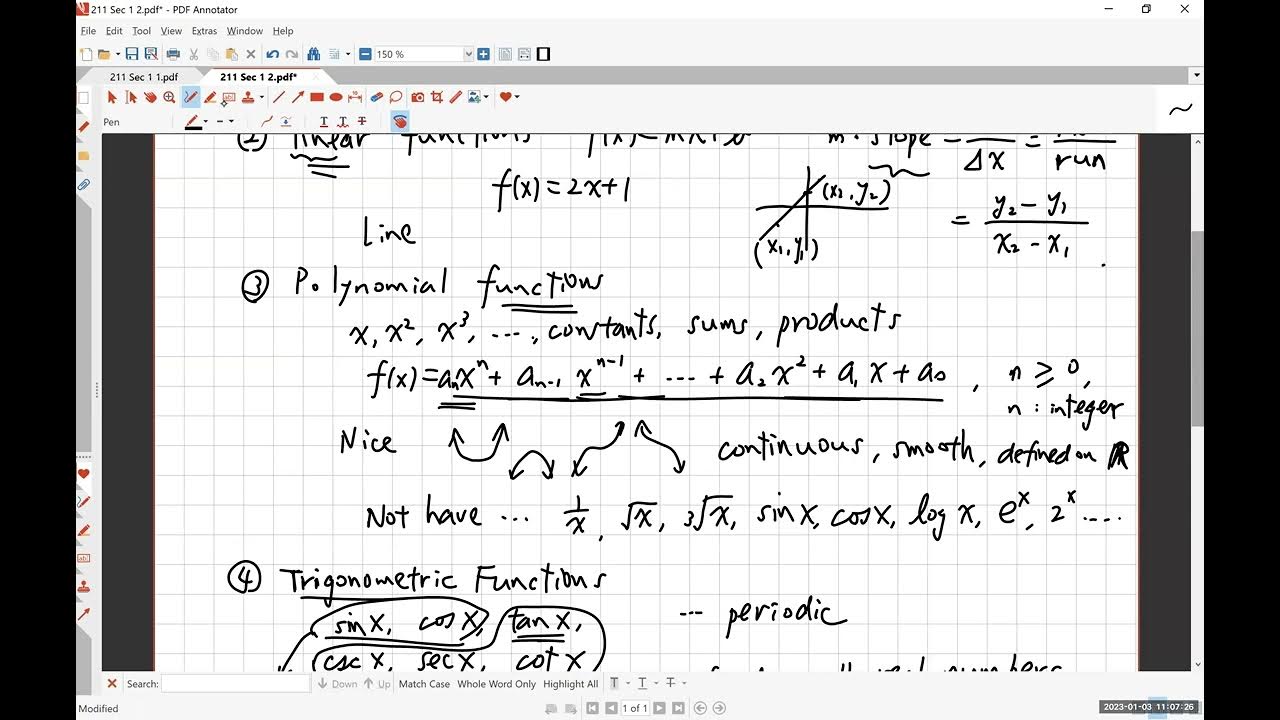 211 Sec 1 2.pdf* - PDF Annotator
File Edit Tool View Extras Window Help
150 %
211 Sec 1 1.pdf
211 Sec 1 2.pdf*
Pen
② linear functions f(x)=mx+b m: slope = — / Δx = — / run
f(x)=2x+1
(x₂, y₂)
= (y₂ - y₁) / (x₂ - x₁)
Line
(x₁, y₁)
③ Polynomial functions
x, x², x³, ..., constants, sums, products
f(x)=aₙxⁿ + aₙ₋₁ xⁿ⁻¹ + ... + a₂x² + a₁x + a₀, n ≥ 0,
n : integer
Nice continuous, smooth, defined on ℝ
Not have ... 1/x, √x, ³√x, sin x, cos x, log x, eˣ, 2ˣ ....
④ Trigonometric Functions
sin x, cos x, tan x, ... periodic
csc x, sec x, cot x
Search: Down Up Match Case Whole Word Only Highlight All
1 of 1
Modified
2023-01-03 11:07:26